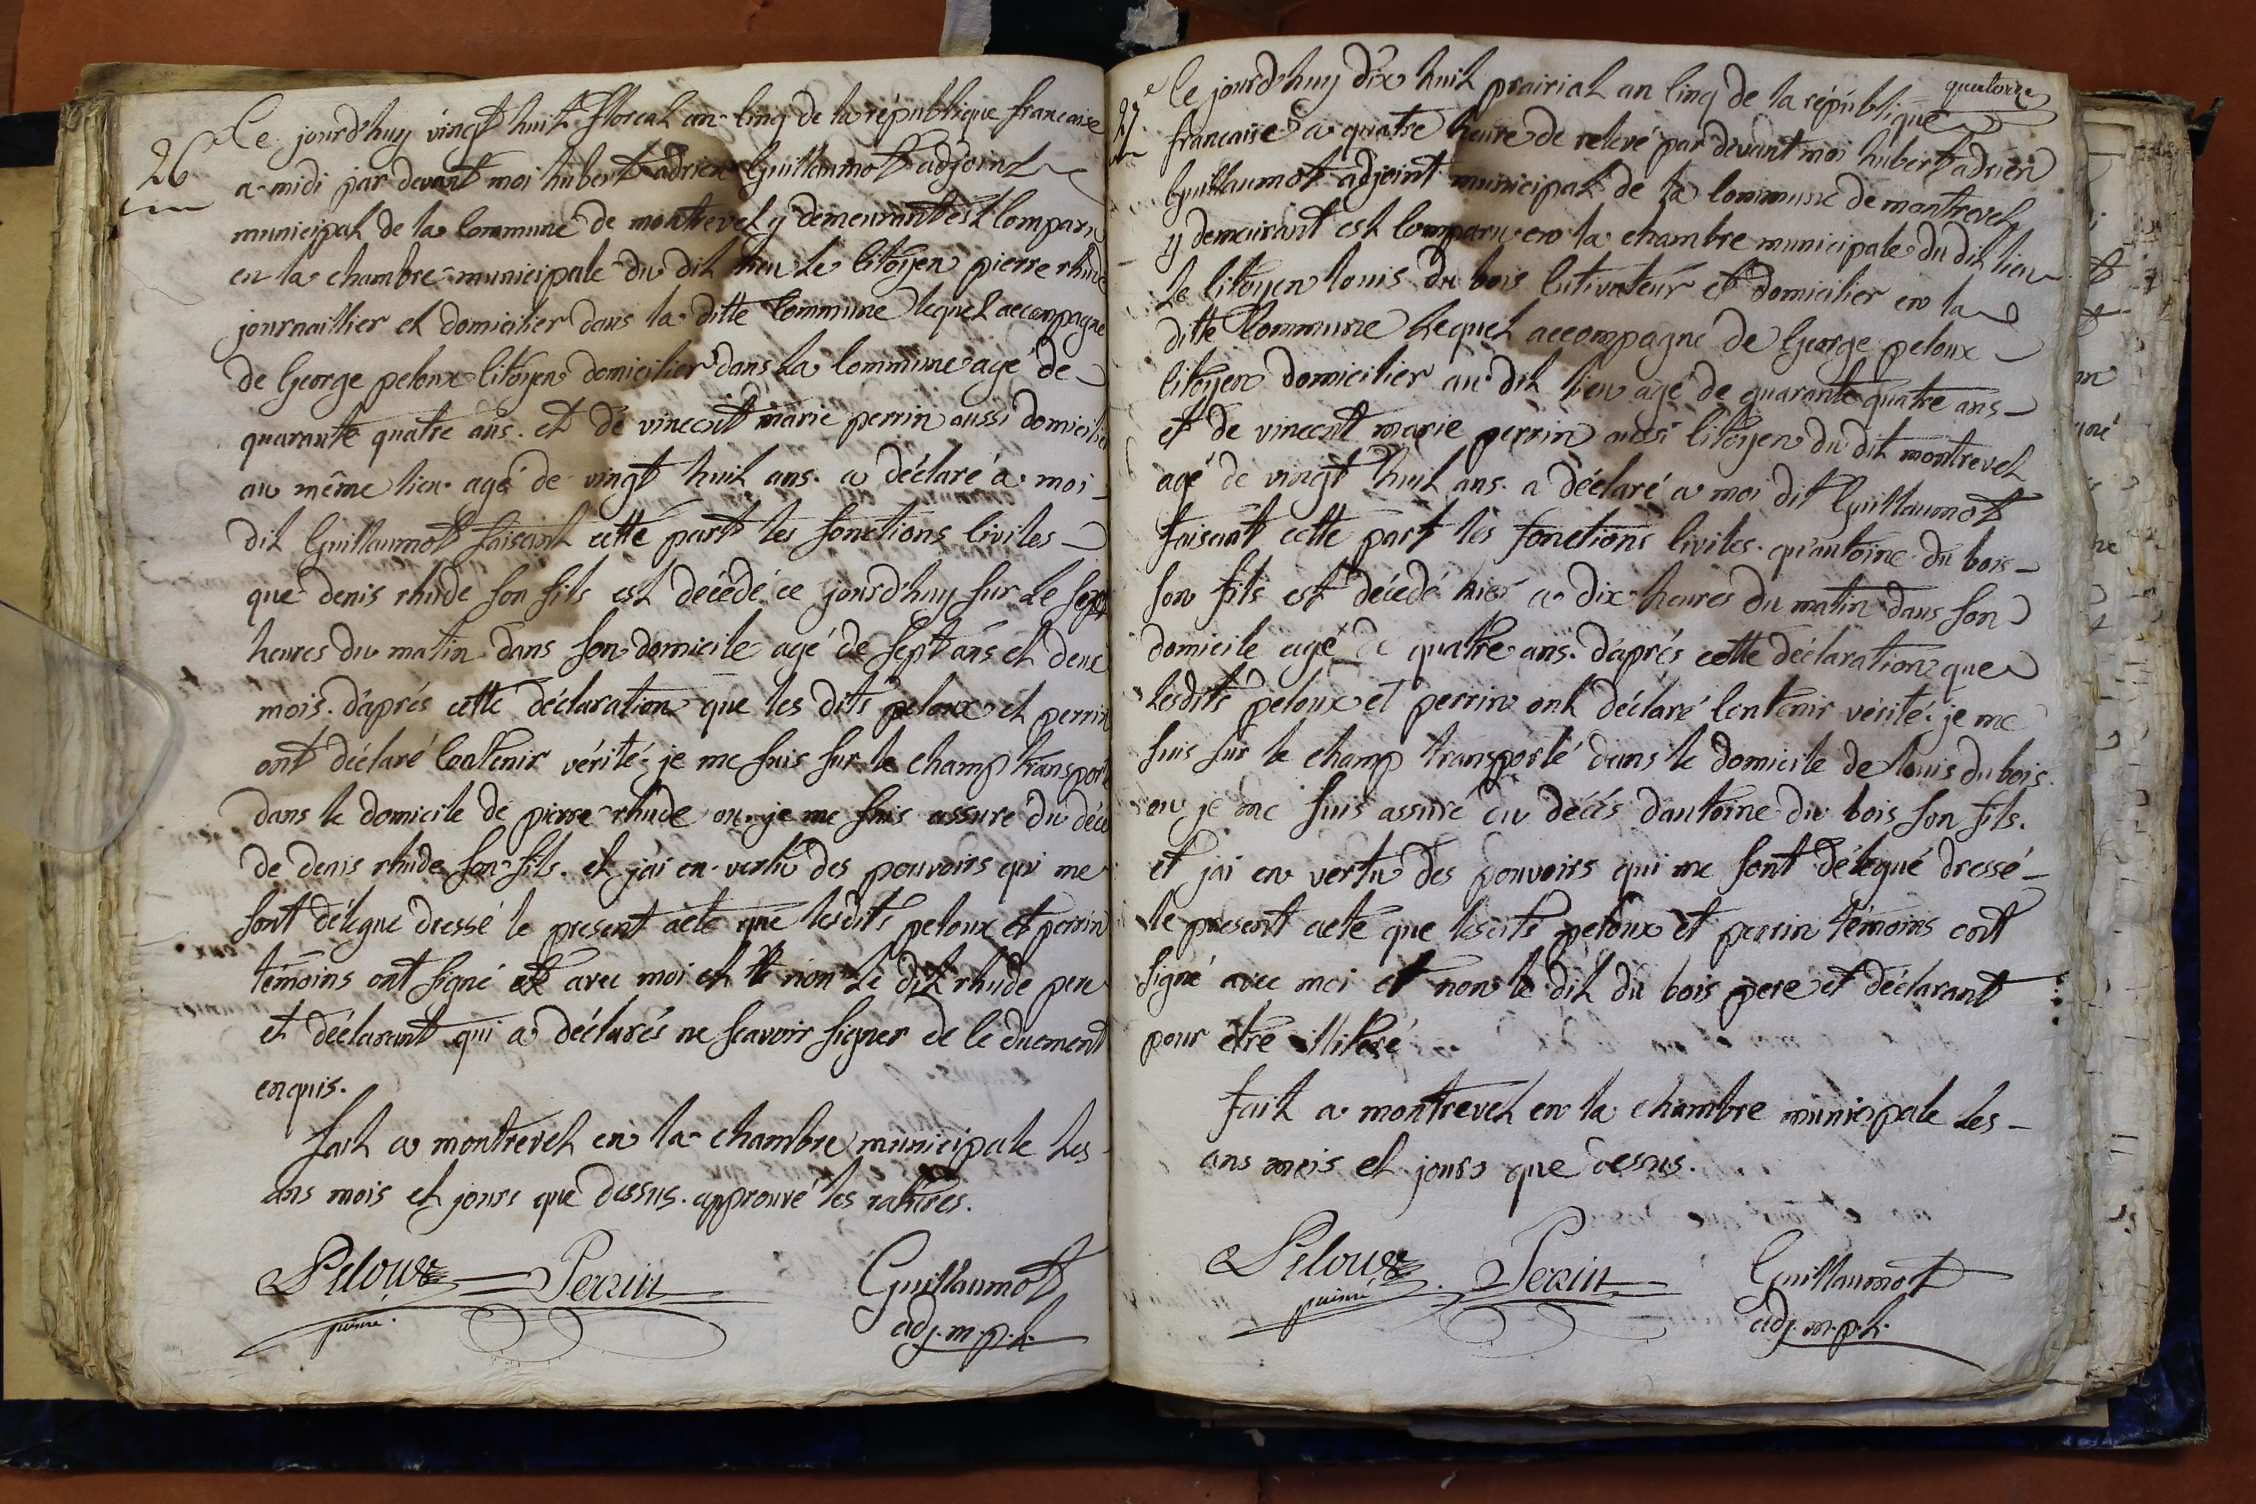 26e
Ce jourd'huy vingt huit floreal an cinq de la république francaise
a midi par devant moi hubert adrien Guillaumot adjoint
municipal de la Commune de montrevel y demeurant est Comparu
en la chambre municipale du dit lieu le Citoyen pierre rhude
journaillier et domicilier dans la ditte Commune lequel accompagne
de George peloux Citoyen domicilier dans la Commune agé de
quarante quatre ans. et de vincent marie perrin aussi domicilier
au même lieu agé de vingt huit ans. a déclaré a moi
dit Guillaumot faisant cette part les fonctions Civiles
que denis rhude son fils est décédé ce jourd'huy sur le sept
heures du matin dans son domicile agé de sept ans et deux
mois. d'aprés cette déclaration que les dits peloux et perrin
ont déclaré Contenir vérité. je me suis sur le champ transporté
dans le domicile de pierre rhude ou je me suis assuré du décé
de denis rhude son fils. et j'ai en vertu des pouvoirs qui me
sont délegué dressé le present acte que lesdits peloux et perrin
témoins ont signé avec moi et non le dit rhude pere
et déclarant qui a déclarés ne scavoir signer de le duement
enquis.
fait a montrevel en la chambre municipale les
ans mois et jours que dessus. approuvé les ratures.
Peloux Perrin Guillaumot
puiné. adj. m.p.l.
quatorze
27e
Ce jourd'huy dix huit prairial an Cinq de la république
francaise a quatre heure de relevé par devant moi hubert adrien
Guillaumot adjoint municipal de la Commune de montrevel
y demeurant est Comparu en la chambre municipale du dit lieu
le Citoyen louis du bois Cutivateur et domicilier en la
ditte Commune lequel accompagné de George peloux
Citoyen domicilier au dit lieu agé de quarante quatre ans
et de vincent marie perrin aussi Citoyen du dit montrevel
agé de vingt huit ans. a déclaré a moi dit Guillaumot
faisant cette part les fonctions Civiles. qu'antoine du bois
son fils est décédé hier a dix heures du matin dans son
domicile agé de quatre ans. d'aprés cette déclaration que
lesdits peloux et perrin ont déclaré Contenir vérité. je me
suis sur le champ transporté dans le domicile de louis du bois.
ou je me suis assuré du décés d'antoine du bois son fils.
et j'ai en vertu des pouvoirs qui me sont délegué dressé
le present acte que lesdits peloux et perrin témoins ont
signé avec moi et non le dit du bois pere et déclarant
pour etre illiteré
fait a montrevel en la chambre municipale les
ans mois et jours que dessus.
Peloux Perrin Guillaumot
puiné adj. m.p.l.